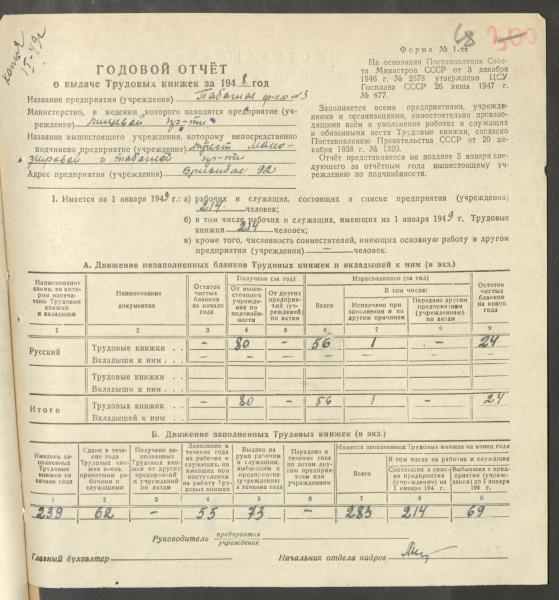 копия
68 300
Форма № 1-тк
На основании Постановления Сове-
та Министров СССР от 3 декабря
1946 г. № 2578 утверждено ЦСУ
Госплана СССР 26 июня 1947 г.
№ 877.
Заполняется всеми предприятиями, учрежде-
ниями и организациями, самостоятельно произво-
дящими наём и увольнение рабочих и служащих
и обязанными вести Трудовые книжки, согласно
Постановлению Правительства СССР от 20 де-
кабря 1938 г. № 1320.
Отчёт представляется не позднее 5 января следу-
ющего за отчётным года вышестоящему учрежде-
нию по подчинённости.
ГОДОВОЙ ОТЧЁТ
о выдаче Трудовых книжек за 1948 год
Название предприятия (учреждения) Табачная ф-ка №3
Министерство, в ведении которого находится предприятие (уч-
реждение) пищевая
пр-ти
Название вышестоящего учреждения, которому непосредственно
подчинено предприятие (учреждение) трест Мано-
жировой и табачной пр-ти
Адрес предприятия (учреждения) Бривибас 92
1. Имеется на 1 января 1949 г.: а) рабочих и служащих, состоящих в списке предприятия (учреждения)
214 человек;
б) в том числе рабочих и служащих, имеющих на 1 января 1949 г. Трудовые
книжки 214 человек;
в) кроме того, численность совместителей, имеющих основную работу в другом
предприятии (учреждении) — человек.
А. Движение незаполненных бланков Трудовых книжек и вкладышей к ним (в экз.)
Наименование языка, на котором напечатаны Трудовые книжки и вкладыши
Наименование документов
Остаток чистых бланков на начало года
Получено (за год)
От вышестоящего учреждения по подчинённости
От других предприятий (учреждений) по актам
Всего
Израсходовано (за год)
В том числе:
Испорчено при заполнении и по другим причинам
Передано другим предприятиям (учреждениям) по актам
Остаток чистых бланков на конец года
1 2 3 4 5 6 7 8 9
Русский Трудовые книжки . . — 80 — 56 1 — 24
Вкладыши к ним . .
Трудовые книжки . .
Вкладыши к ним . .
Итого Трудовых книжек . . — 80 — 56 1 — 24
Вкладышей к ним . .
Б. Движение заполненных Трудовых книжек (в экз.)
Имелось заполненных Трудовых книжек на начало года
Сдано в течение года Трудовых книжек вновь принятыми рабочими и служащими
Получено заполненных Трудовых книжек от других предприятий и учреждений по актам
Заполнено в течение года на рабочих и служащих, не имевших при поступлении на работу Трудовых книжек
Выдано на руки рабочим и служащим, выбывшим с предприятия (учреждения) в течение года
Передано в течение года по актам другим предприятиям или учреждениям
Имеется заполненных Трудовых книжек на конец года
Всего
В том числе на рабочих и служащих
Состоящих в списке предприятия (учреждения) на 1 января 194 г.
Выбывших с предприятия (учреждения) до 1 января 194 г.
1 2 3 4 5 6 7 8 9
239 62 — 55 73 — 283 214 69
Руководитель предприятия
учреждения
Главный бухгалтер Начальник отдела кадров